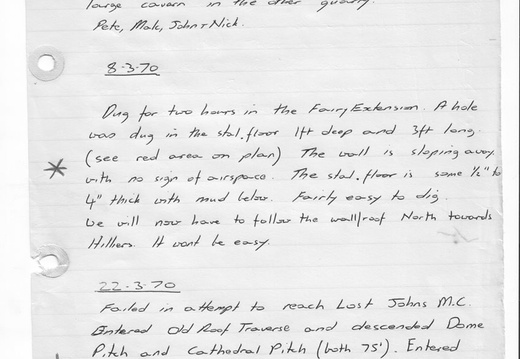 large cavern in the other quarry.
Pete, Malc, John + Nick.
8-3-70
Dug for two hours in the Fairy Extension. A hole
was dug in the stal. floor 1ft deep and 3ft long.
(see red area on plan) The wall is sloping away
with no sign of airspace. The stal. floor is some ½" to
4" thick with mud below. Fairly easy to dig.
We will now have to follow the wall/roof North towards
Hilliers. It wont be easy.
22-3-70
Failed in attempt to reach Lost Johns M.C.
Entered Old Roof Traverse and descended Dome
Pitch and Cathedral Pitch (both 75'). Entered